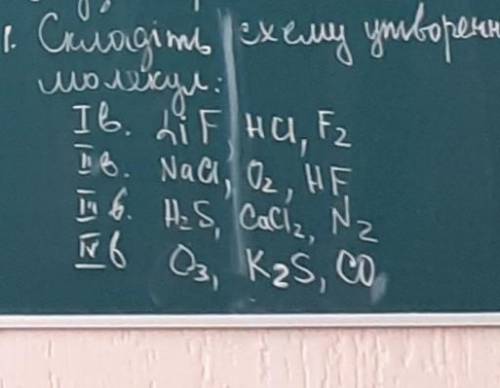 1. Складіть схему утворенн
молекул:
I в. LiF, HCl, F2
II в. NaCl, O2, HF
III в. H2S, CaCl2, N2
IV в O3, K2S, CO